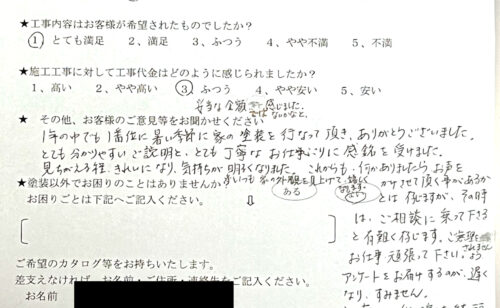 ★工事内容はお客様が希望されたものでしたか?
① とても満足 2、満足 3、ふつう 4、やや不満 5、不満
★施工工事に対して工事代金はどのように感じられましたか?
1、高い 2、やや高い ③、ふつう 4、やや安い 5、安い
妥当な金額 感じました。
ではないかなと、
★ その他、お客様のご意見等をお聞かせください
1年の中でも1番位に暑い季節に家の塗装を行なって頂き、ありがとうございました。
とても分かりやすいご説明と、とても丁寧なお仕事ぶりに感銘を受けました。
見ちがえる程、きれいになり、気持ちが明るくなりました。これからも、何かありましたらお声を
いつも家の外観を見上げて、嬉しく
★塗装以外でお困りのことはありませんか?
ある
お困りごとは下記へご記入ください。
かけさせて頂く事があるか
とは存じますが、その時
は、ご相談に乗って下さる
と有難く存じます。
お仕事頑張って下さい。
アンケートをお届けするのが、遅く
なり、すみません。
ご希望のカタログ等をお持ちいたします。
差支えなければ、お名前・ご住所・連絡先をご記入ください。
お名前